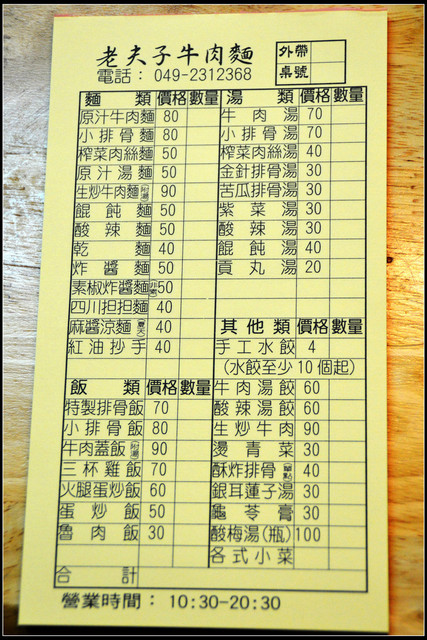 老夫子牛肉麵
電話： 049-2312368
外帶
桌號
麵類 價格 數量
原汁牛肉麵 80
小排骨麵 80
榨菜肉絲麵 50
原汁湯麵 50
生炒牛肉麵(附湯) 90
餛飩麵 50
酸辣麵 50
乾麵 40
炸醬麵 50
素椒炸醬麵 50
四川担担麵 40
麻醬涼麵(夏天) 40
紅油抄手 40
湯類 價格 數量
牛肉湯 70
小排骨湯 70
榨菜肉絲湯 40
金針排骨湯 30
苦瓜排骨湯 30
紫菜湯 30
酸辣湯 30
餛飩湯 40
貢丸湯 20
其他類 價格 數量
手工水餃 4
(水餃至少10個起)
牛肉湯餃 60
酸辣湯餃 60
生炒牛肉 90
燙青菜 30
酥炸排骨(單點) 40
銀耳蓮子湯 30
龜苓膏 30
酸梅湯(瓶) 100
各式小菜
飯類 價格 數量
特製排骨飯 70
小排骨飯 80
牛肉蓋飯(附湯) 90
三杯雞飯 70
火腿蛋炒飯 60
蛋炒飯 50
魯肉飯 30
合計
營業時間： 10:30-20:30